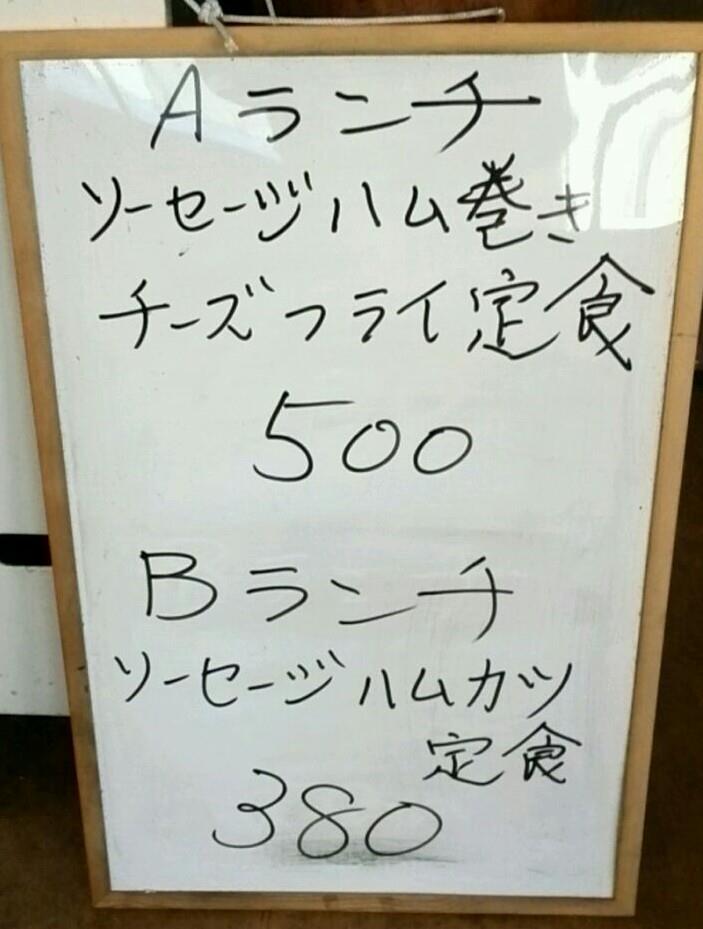 Aランチ
ソーセージハム巻き
チーズフライ定食
500
Bランチ
ソーセージハムカツ
定食
380